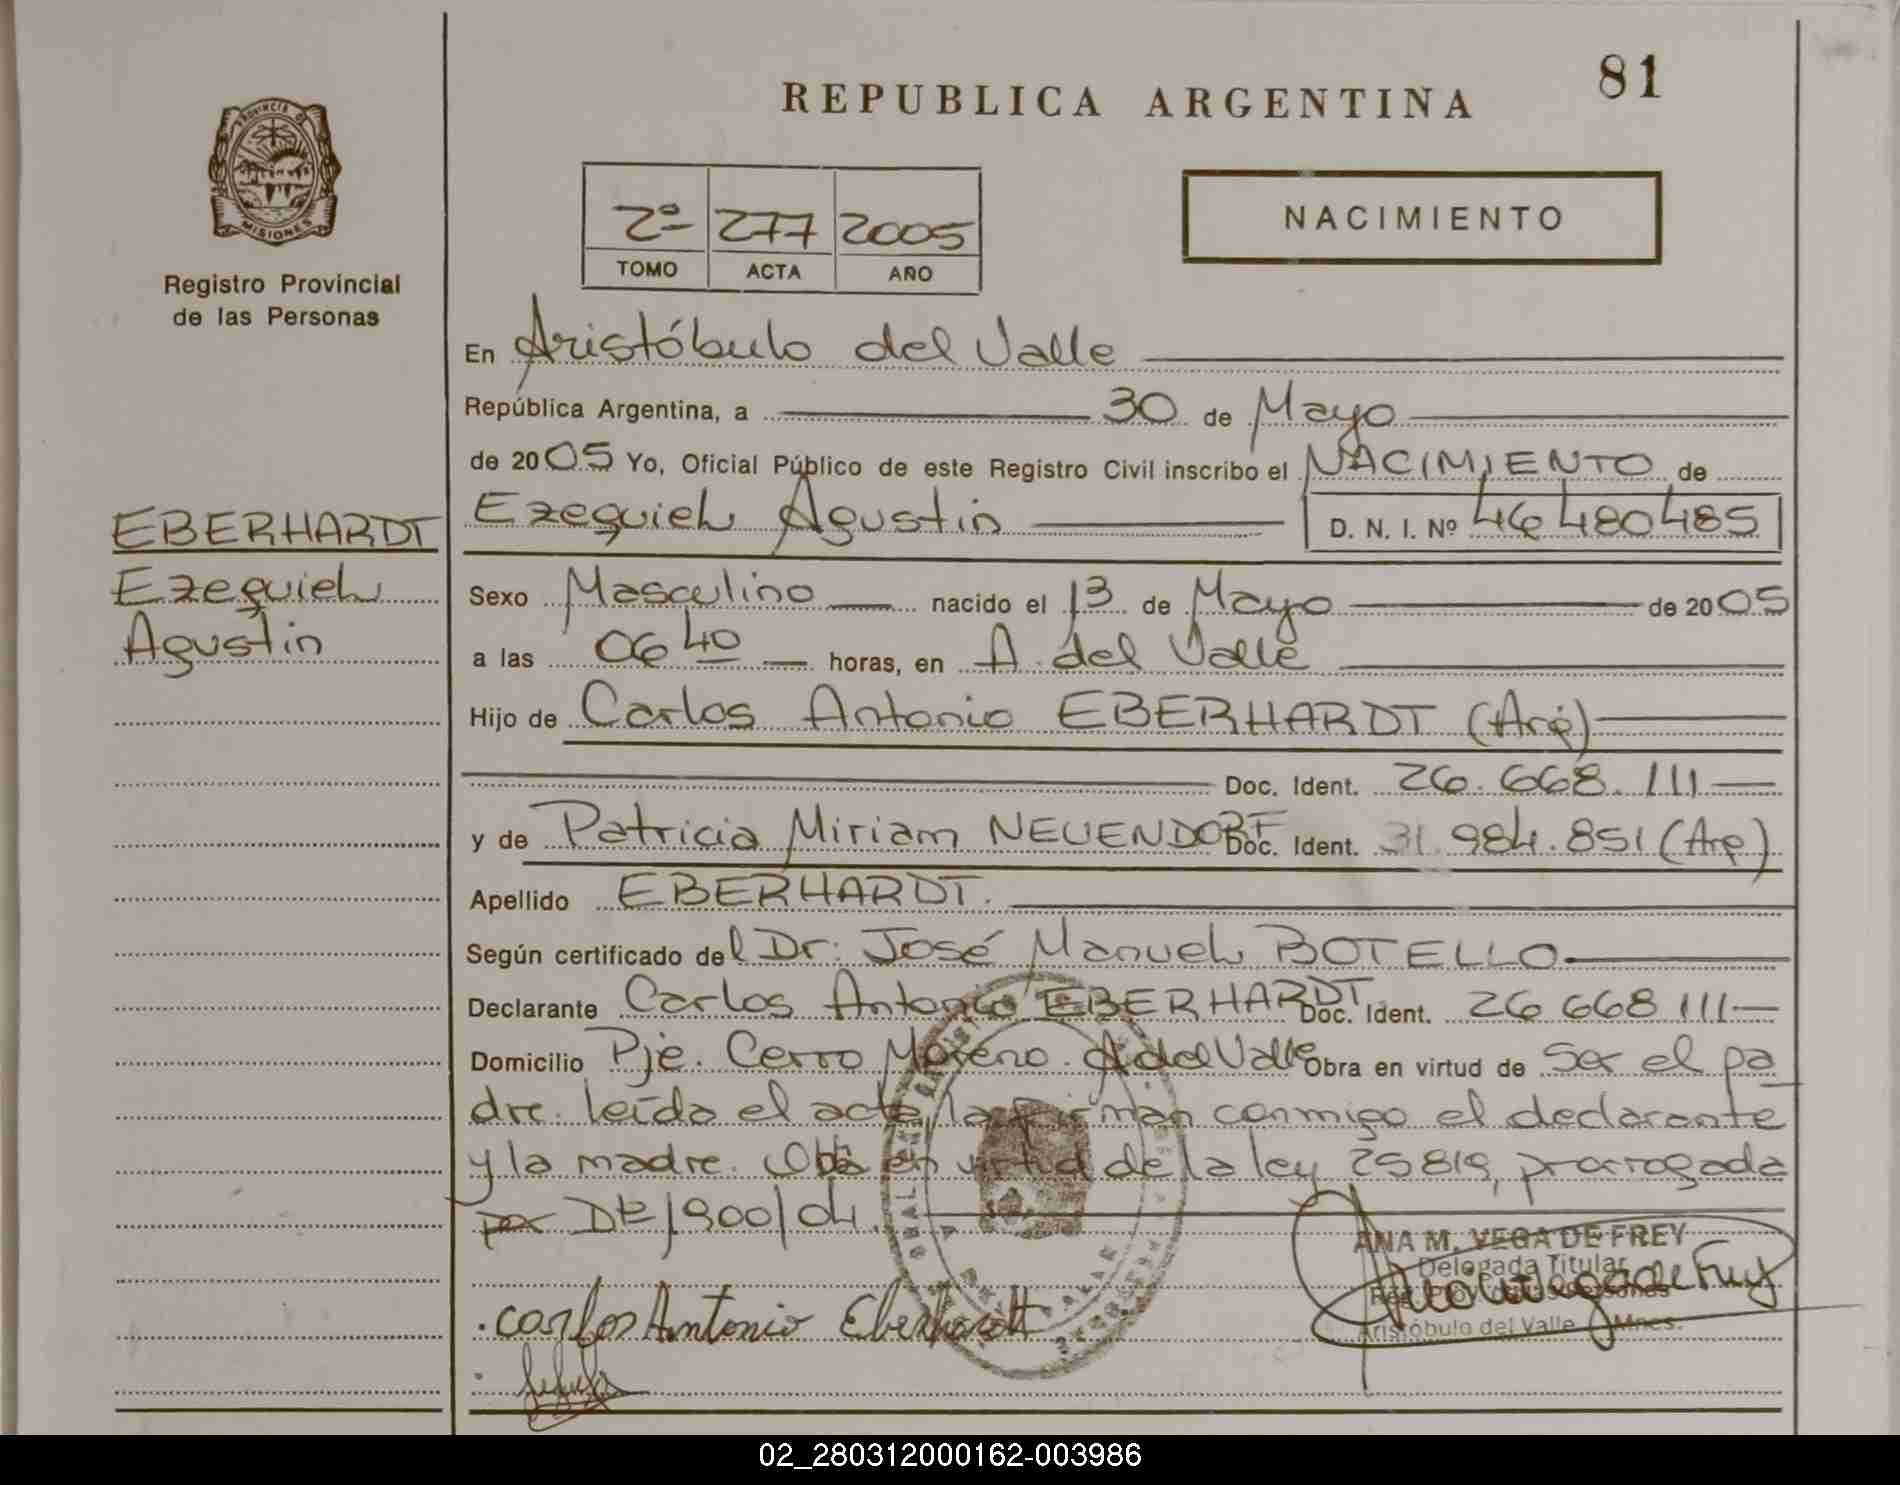 81
REPUBLICA ARGENTINA
PROVINCIA DE
MISIONES
Registro Provincial
de las Personas
2º 277 2005
TOMO ACTA AÑO
NACIMIENTO
En Aristóbulo del Valle
República Argentina, a 30 de Mayo
de 2005 Yo, Oficial Público de este Registro Civil inscribo el NACIMIENTO de
EBERHARDT
Ezequiel
Agustin
Ezequiel Agustin D. N. I. Nº 46480485
Sexo Masculino nacido el 13 de Mayo de 2005
a las 06 40 horas, en A. del Valle
Hijo de Carlos Antonio EBERHARDT (Arg)
Doc. Ident. 26.668.111
y de Patricia Miriam NEUENDORF Doc. Ident. 31.984.851 (Arg)
Apellido EBERHARDT.
Según certificado del Dr: José Manuel BOTELLO
Declarante Carlos Antonio EBERHARDT Doc. Ident. 26 668 111
Domicilio Pje. Cerro Moreno. A del Valle Obra en virtud de Ser el pa
dre. leída el acta, la firman conmigo el declarante
y la madre. Obra en virtud de la ley 25819, prorrogada
por Dto/900/04.
ANA M. VEGA DE FREY
Delegada Titular
Reg. Prov. de las Personas
Aristóbulo del Valle Mnes.
Carlos Antonio Eberhardt
02_280312000162-003986